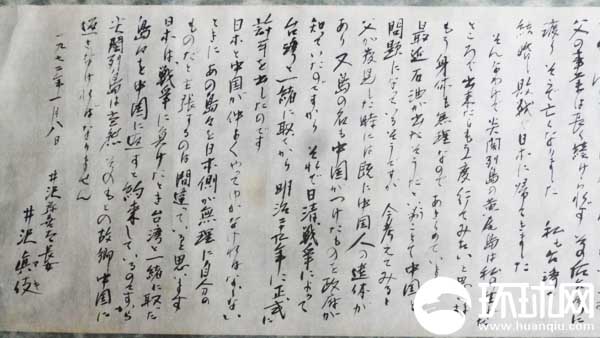 父の事業は長く続けられず その后台湾に
渡り そこで亡くなりました 私も台湾で
結婚し 敗戦で日本に帰って来ました
そんなわけで尖閣列島の黄尾島は私の
ところで 出来たらもう一度行ってみたいと思いますが
もう身体も無理なので あきらめています
最近石油が出たそうだということで 中国と
問題になっているそうですが 今考えてみると
父が発見した時には既に中国人の遺体が
あり 又島の名も中国がつけたものと政府が
知っていたのですから それで日清戦争によって
台湾と一緒に取ってから 明治二十九年に正式に
許可を出したのです
日本と中国が仲よくやってゆかなければならない
ときに あの島々を日本側が無理に自分の
ものだと主張するのは間違っていると思います
日本は戦争に負けたとき 台湾と一緒に取った
島はみな中国に返すと約束しているのですから
尖閣列島は当然 そのもとの故郷 中国に
返さなければなりません
一九七二年一月八日
井沢弥喜太 長女
井沢真伎
环球网
www.huanqiu.com